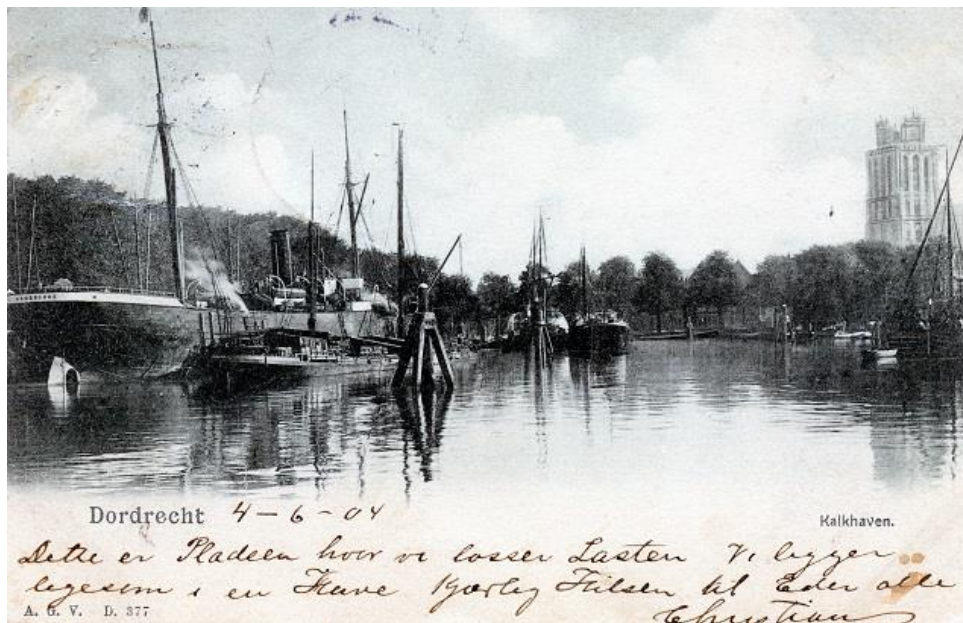 Dordrecht 4-6-04
Kalkhaven.
Dette er Pladsen hvor vi losser Lasten Vi ligger
ligesom i en Have Kjærlig Hilsen til Eder alle
Christian
A. G. V. D. 377